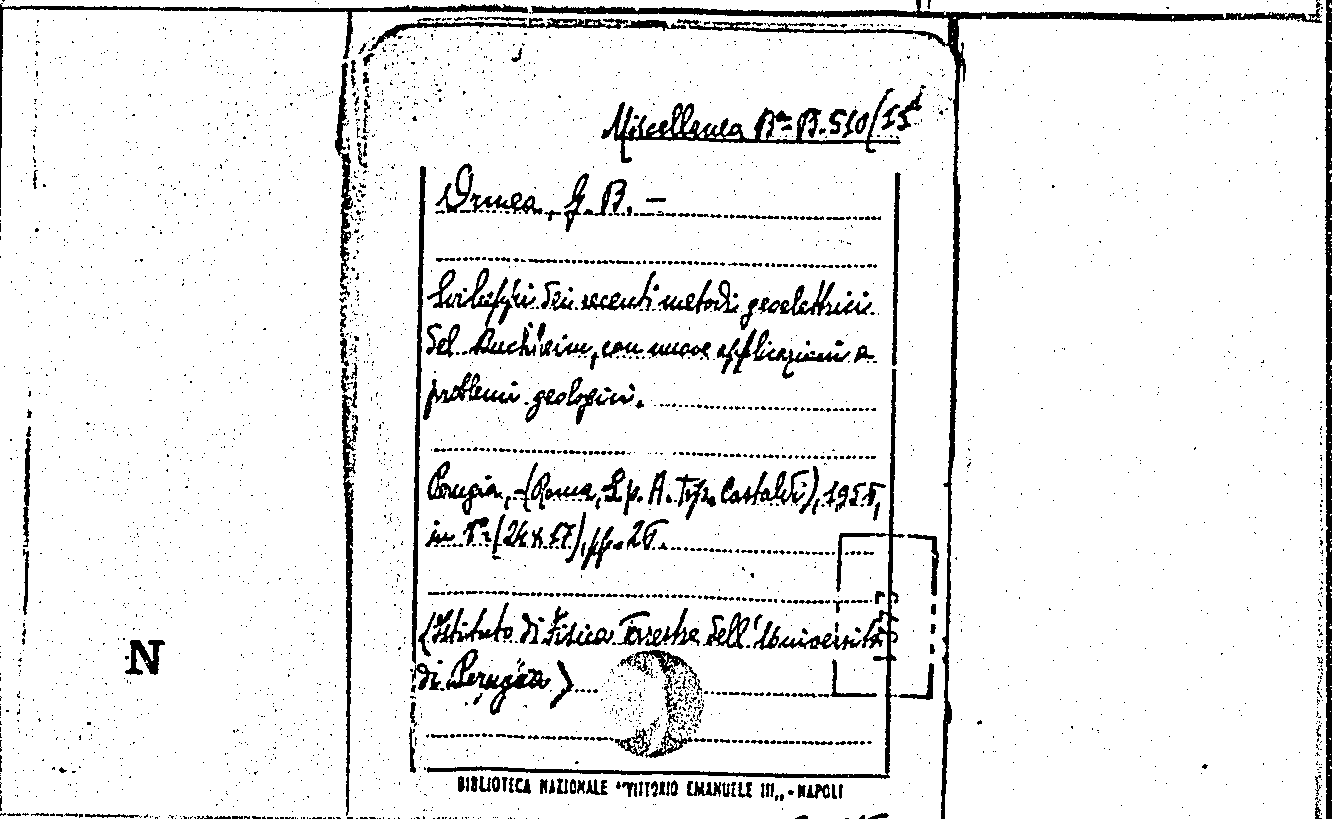 Miscellenea Bᵃ B. 510/15
Ormea, G. B. —
Sviluppi dei recenti metodi geoelettrici
del con nuove applicazioni a
problemi geologici.
Perugia, - (Roma, S. p. A. Tip. Castaldi), 195
in (24 x 17), pp.
(Istituto di Fisica Terrestre dell'Università
di Perugia)
N
BIBLIOTECA NAZIONALE "VITTORIO EMANUELE III„ - NAPOLI